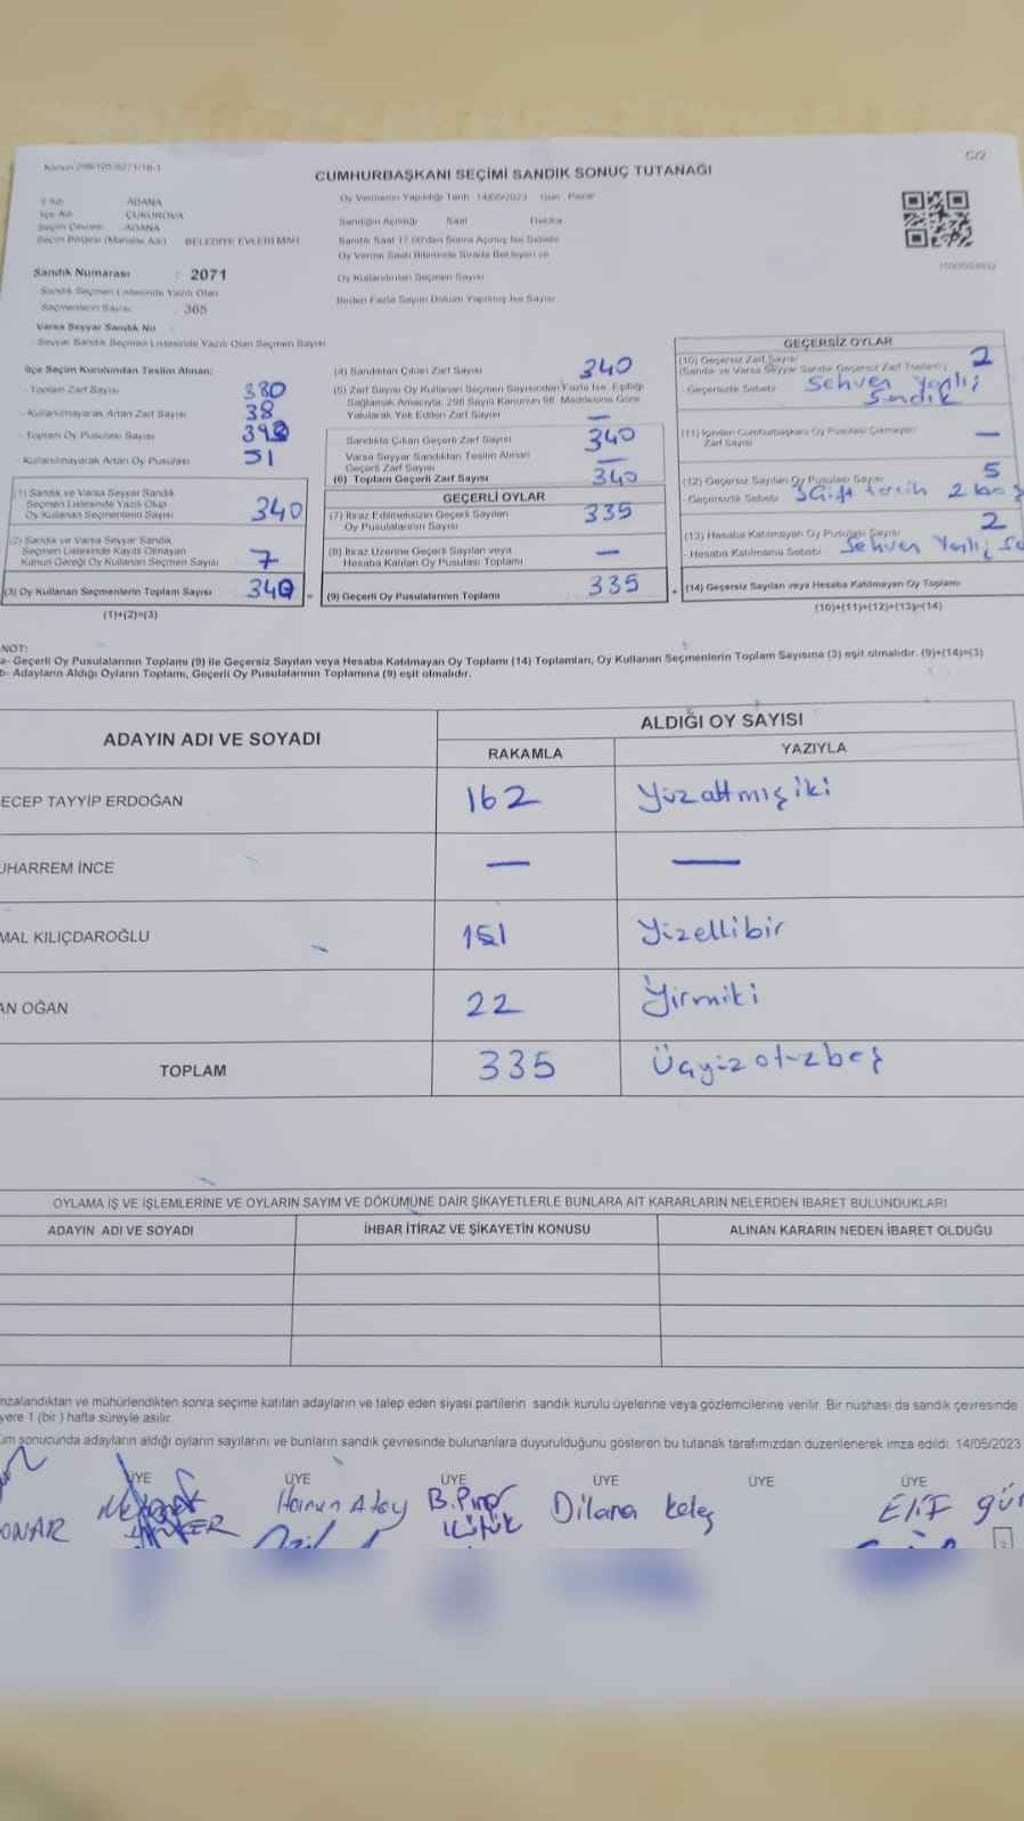 C/2
CUMHURBAŞKANI SEÇİMİ SANDIK SONUÇ TUTANAĞI
Oy Vermenin Yapıldığı Tarih 14/05/2023 Gün Pazar
İl Adı ADANA
İlçe Adı ÇUKUROVA
Seçim Çevresi ADANA
BELEDİYE EVLERİ MAH
Sandığın Açıldığı Saat Dakika
Sandık Numarası : 2071
Sandık Seçmen Listesinde Yazılı Olan
Seçmenlerin Sayısı 365
Oy Kullandırılan Seçmen Sayısı
Birden Fazla Sayım Döküm Yapılmış İse Sayısı
Varsa Seyyar Sandık No
Seyyar Sandık Seçmen Listesinde Yazılı Olan Seçmen Sayısı
İlçe Seçim Kurulundan Teslim Alınan;
- Toplam Zarf Sayısı 380
- Kullanılmayarak Artan Zarf Sayısı 38
- Toplam Oy Pusulası Sayısı
- Kullanılmayarak Artan Oy Pusulası 51
(1) Sandık ve Varsa Seyyar Sandık
Seçmen Listesinde Yazılı Olup
Oy Kullanan Seçmenlerin Sayısı 340
(2) Sandık ve Varsa Seyyar Sandık
Seçmen Listesinde Kayıtlı Olmayan
Kanun Gereği Oy Kullanan Seçmen Sayısı 7
(3) Oy Kullanan Seçmenlerin Toplam Sayısı 340
(1)+(2)=(3)
(4) Sandıktan Çıkan Zarf Sayısı 340
(5) Zarf Sayısı Oy Kullanan Seçmen Sayısından Fazla İse, Eşitliği
Sağlamak Amacıyla, 298 Sayılı Kanunun 98. Maddesine Göre
Yakılarak Yok Edilen Zarf Sayısı —
Sandıkta Çıkan Geçerli Zarf Sayısı 340
Varsa Seyyar Sandıktan Teslim Alınan
Geçerli Zarf Sayısı —
(6) Toplam Geçerli Zarf Sayısı 340
GEÇERLİ OYLAR
(7) İtiraz Edilmeksizin Geçerli Sayılan
Oy Pusulalarının Sayısı 335
(8) İtiraz Üzerine Geçerli Sayılan veya
Hesaba Katılan Oy Pusulası Toplamı —
(9) Geçerli Oy Pusulalarının Toplamı 335
GEÇERSİZ OYLAR
(10) Geçersiz Zarf Sayısı 2
(Sandık ve Varsa Seyyar Sandık Geçersiz Zarf Toplamı)
- Geçersizlik Sebebi Sehven Yanlış
Sandık
(11) İçinden Cumhurbaşkanı Oy Pusulası Çıkmayan
Zarf Sayısı —
(12) Geçersiz Sayılan Oy Pusulası Sayısı 5
- Geçersizlik Sebebi 3 Çift tercih 2 boş
(13) Hesaba Katılmayan Oy Pusulası Sayısı 2
- Hesaba Katılmama Sebebi Sehven Yanlış
(14) Geçersiz Sayılan veya Hesaba Katılmayan Oy Toplamı
(10)+(11)+(12)+(13)=(14)
NOT:
a- Geçerli Oy Pusulalarının Toplamı (9) ile Geçersiz Sayılan veya Hesaba Katılmayan Oy Toplamı (14) Toplamları, Oy Kullanan Seçmenlerin Toplam Sayısına (3) eşit olmalıdır. (9)+(14)=(3)
b- Adayların Aldığı Oyların Toplamı, Geçerli Oy Pusulalarının Toplamına (9) eşit olmalıdır.
ADAYIN ADI VE SOYADI ALDIĞI OY SAYISI
RAKAMLA YAZIYLA
ECEP TAYYİP ERDOĞAN 162 Yüzaltmışiki
UHARREM İNCE — —
MAL KILIÇDAROĞLU 151 Yüzellibir
AN OĞAN 22 Yirmiiki
TOPLAM 335 Üçyüzotuzbeş
OYLAMA İŞ VE İŞLEMLERİNE VE OYLARIN SAYIM VE DÖKÜMÜNE DAİR ŞİKAYETLERLE BUNLARA AİT KARARLARIN NELERDEN İBARET BULUNDUKLARI
ADAYIN ADI VE SOYADI İHBAR İTİRAZ VE ŞİKAYETİN KONUSU ALINAN KARARIN NEDEN İBARET OLDUĞU
nzalandıktan ve mühürlendikten sonra seçime katılan adayların ve talep eden siyasi partilerin sandık kurulu üyelerine veya gözlemcilerine verilir. Bir nüshası da sandık çevresinde
yere 1 (bir ) hafta süreyle asılır.
üm sonucunda adayların aldığı oyların sayılarını ve bunların sandık çevresinde bulunanlara duyurulduğunu gösteren bu tutanak tarafımızdan düzenlenerek imza edildi. 14/05/2023
ÜYE ÜYE ÜYE ÜYE ÜYE ÜYE
ONAR Harun Atay B.Pınar Dilara Keleş Elif